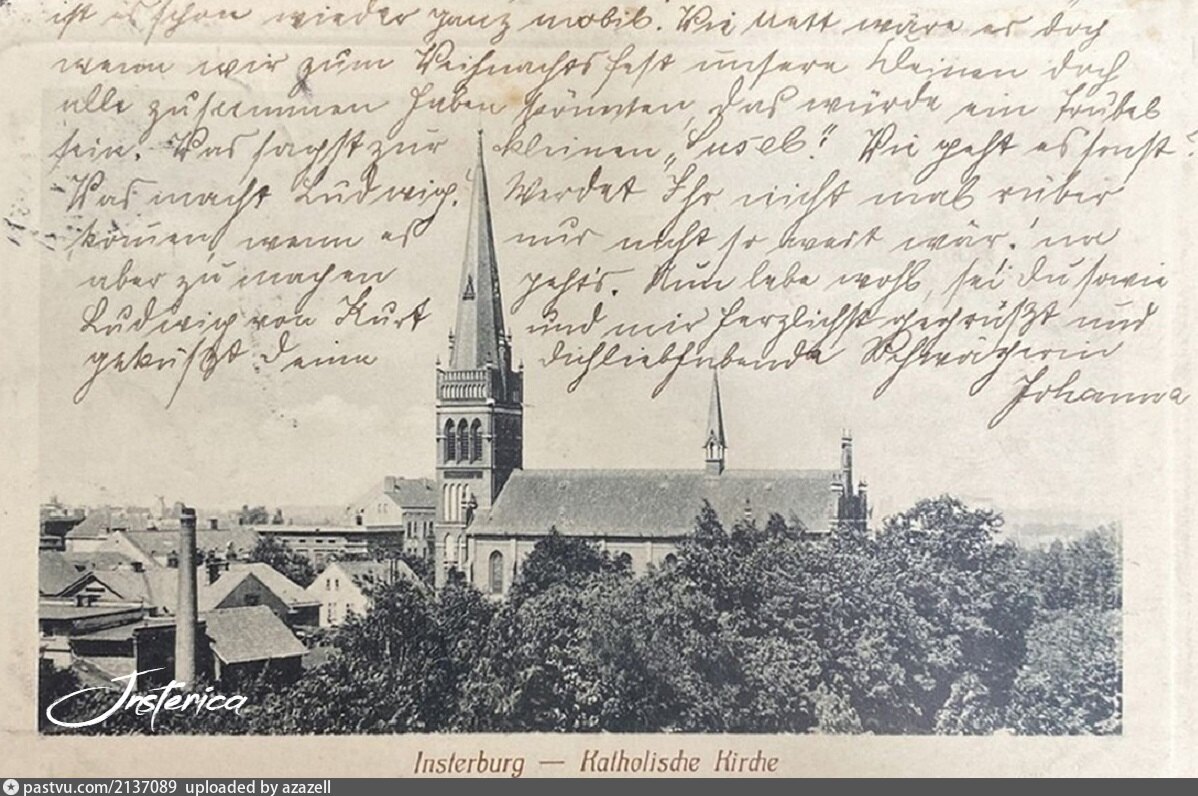 ist es schon wieder ganz mobil. Wie nett wäre es doch
wenn wir zum Weihnachtsfest unsere Kleinen doch
alle zusammen haben könnten, das würde ein Trubel
sein. Was sagst zur kleinen „Lusel“? Wie geht es sonst?
Was macht Ludwig. Werdet Ihr nicht mal rüber
kommen, wenn es nur nicht so weit wär! na
aber zu machen gehts. Nun lebe wohl, sei Du sowie
Ludwig von Kurt und mir herzlichst gegrüßt und
geküßt Deine Dichliebhabende Schwägerin
Johanna
Insterica
Insterburg — Katholische Kirche
pastvu.com/2137089 uploaded by azazell